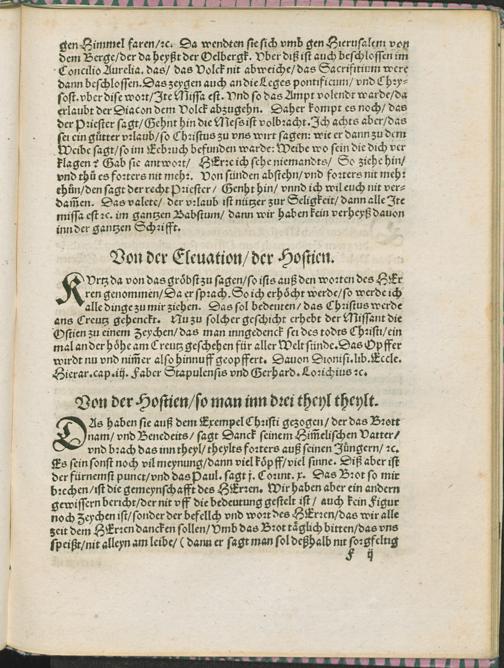 gen Himmel faren/ꝛc. Da wendten sie sich vmb gen Hierusalem von
dem Berge/der da heyßt der Oelbergk. Vber diß ist auch beschlossen im
Concilio Aurelia. das/ das Volck nit abweiche/das Sacrifitium were
dann beschlossen. Das zeygen auch an die Leges pontificum/ vnd Chry-
sost. vber dise wort/Ite Missa est. Vnd so das Ampt volendt warde/da
erlaubt der Diacon dem Volck abzugehn. Daher kompt es noch/das
der Priester sagt/Gehnt hin die Mess ist volbracht. Ich achts aber/das
sei ein gütter vrlaub/so Christus zu vns wirt sagen: wie er dann zu dem
Weibe sagt/so im Eebruch befunden warde: Weibe wo sein die dich ver
klagen? Gab sie antwort/ HErre ich sehe niemandts/ So ziehe hin/
vnd thů es forters nit mehr. Von sünden abstehn/vnd forters nit mehr
thůn/den sagt der recht Priester/ Gehnt hin/ vnnd ich wil euch nit ver-
dam̃en. Das valete/ der vrlaub ist nützer zur Seligkeit/dann alle Ite
missa est ꝛc. im gantzen Babstum/ dann wir haben kein verheyß dauon
inn der gantzen Schrifft.
Von der Eleuation/ der Hostien.
KVrtz da von das gröbst zu sagen/so ists auß den worten des HEr
ren genommen/Da er sprach. So ich erhöcht werde/so werde ich
alle dinge zu mir ziehen. Das sol bedeuten/ das Christus werde
ans Creutz gehenckt. Nu zu solcher geschicht erhebt der Missant die
Ostien zu einem Zeychen/das man inngedenck sei des todts Christi/ein
mal an der höhe am Creutz geschehen für aller Welt sünde. Das Opffer
wirdt nu vnd nim̃er also hinnuff geopffert. Dauon Dionisi. lib. Eccle.
Hierar. cap. iij. Faber Stapulensis vnd Gerhard. Lorichius ꝛc.
Von der Hostien/so man inn drei theyl theylt.
DAs haben sie auß dem Exempel Christi gezogen/der das Brott
nam/vnd Benedeits/ sagt Danck seinem Him̃elischen Vatter/
vnd brach das inn theyl/theylts forters auß seinen Jüngern/ ꝛc.
Es sein sonst noch vil meynung/dann viel köpff/viel sinne. Diß aber ist
der fürnemst punct/vnd das Paul. sagt j. Corint. x. Das Brot so mir
brechen/ist die gemeynschafft des HErren. Wir haben aber ein andern
gewissern bericht/der nit vff die bedeutung gestelt ist/ auch kein Figur
noch Zeychen ist/sonder der befelch vnd wort des HErren/das wir alle
zeit dem HErren dancken sollen/Vmb das Brot täglich bitten/das vns
speißt/nit alleyn am leibe/ (dann er sagt man sol deßhalb nit sorgfeltig
F ij